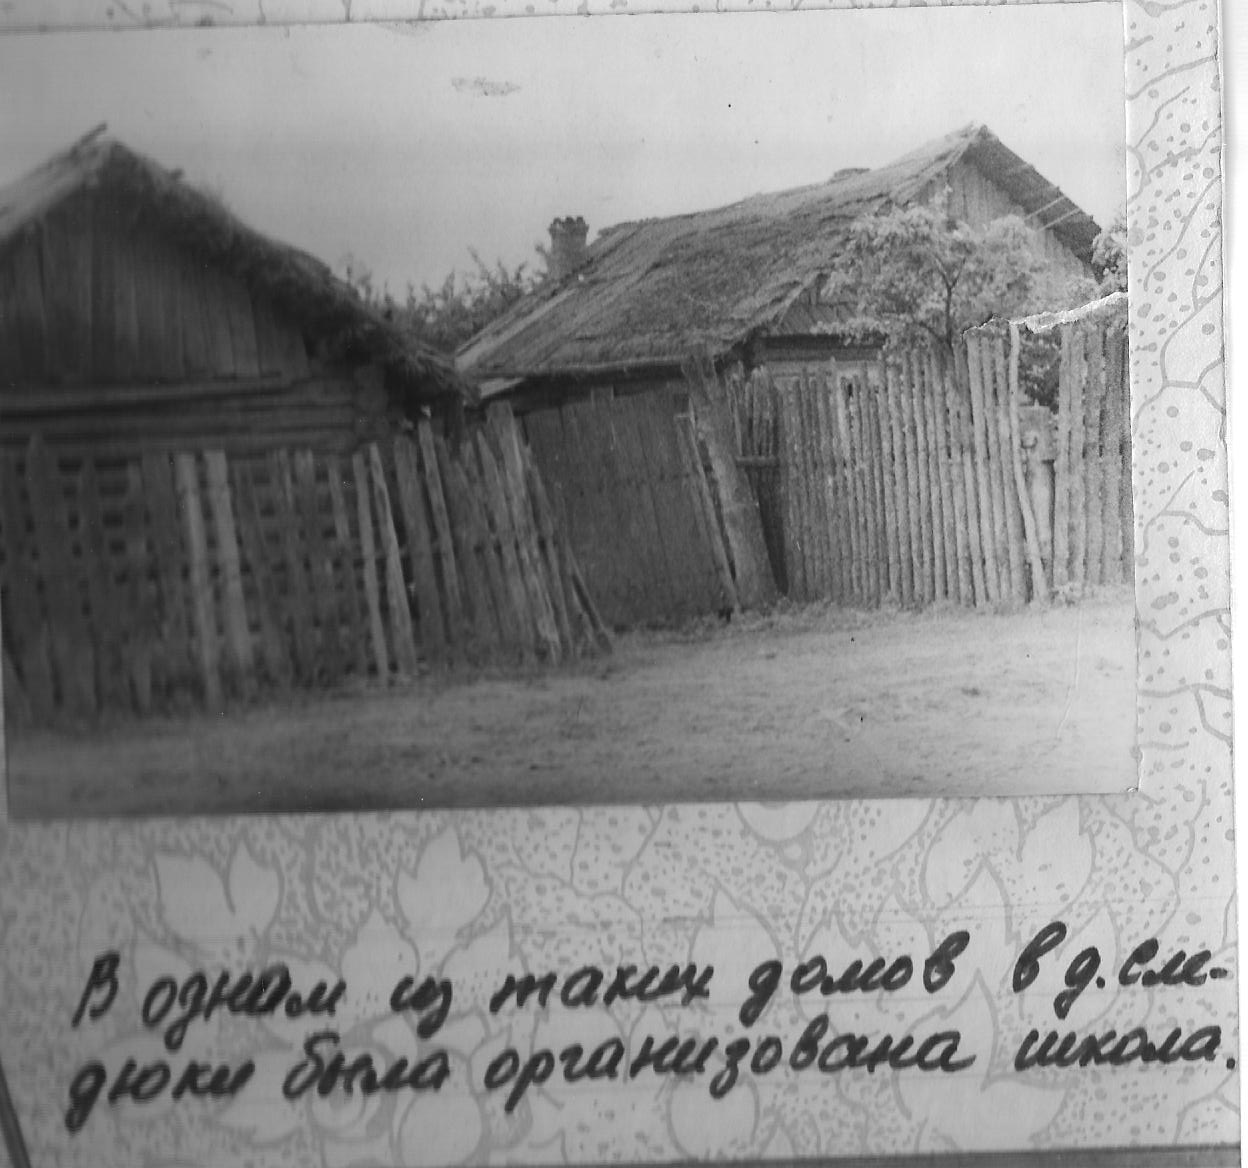 В одном из таких домов в д. Сле-
дюки была организована школа.